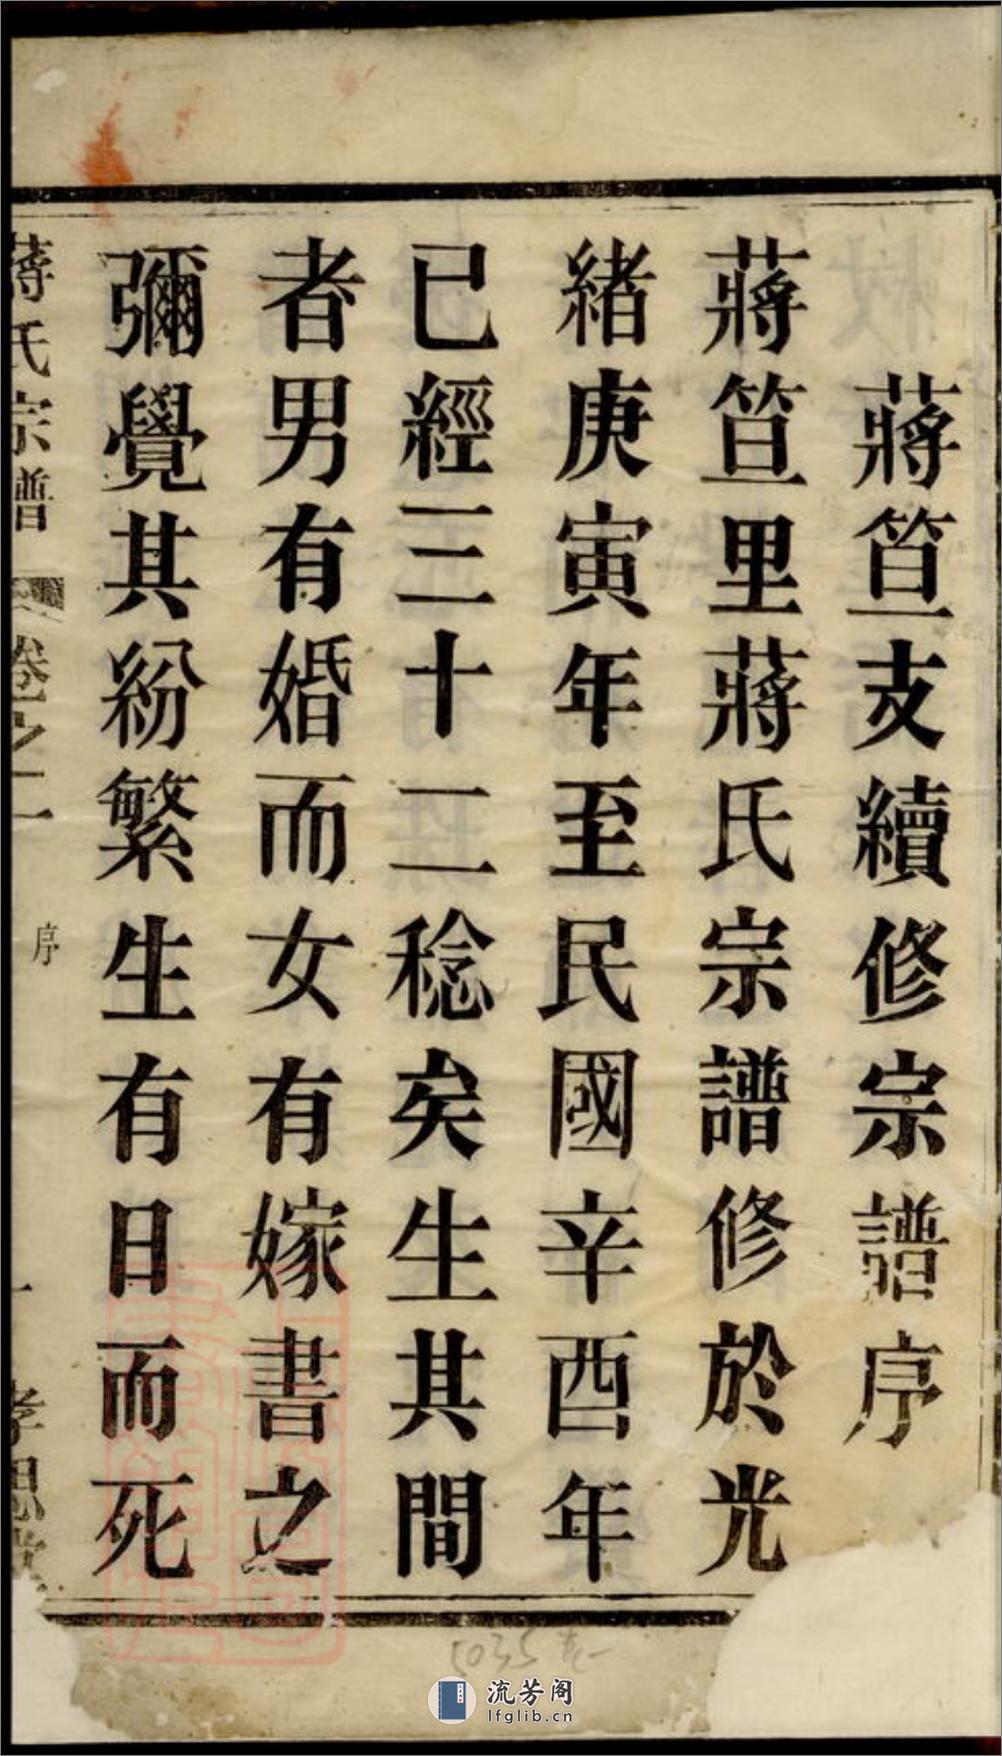 蔣笪支續修宗譜序
蔣笪里蔣氏宗譜修於光
緒庚寅年至民國辛酉年
已經三十二稔矣生其間
者男有婚而女有嫁書之
彌覺其紛繁生有日而死
蔣氏宗譜
卷之一
序
一
孝思堂
5035
流芳阁
lfglib.cn